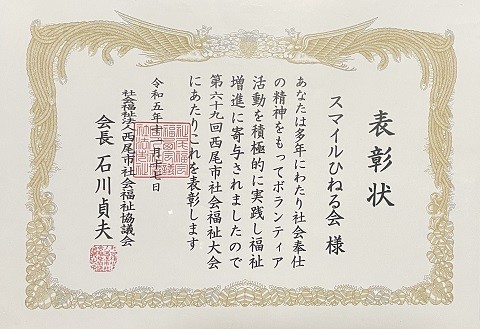 表彰状
スマイルひねる会 様
あなたは多年にわたり社会奉仕
の精神をもってボランティア
活動を積極的に実践し福祉
増進に寄与されましたので
第六十九回西尾市社会福祉大会
にあたりこれを表彰します
令和五年十一月十七日
社会福祉法人西尾市社会福祉協議会
会長 石川貞夫